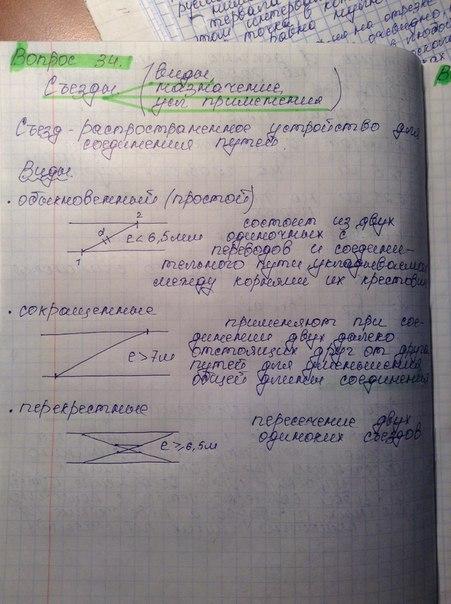 Вопрос 34.
Съезды (виды,
назначение,
усл применения)
Съезд - распространенное устройство для
соединения путей.
Виды.
• обыкновенный (простой)
2
α
e < 6,5мм
1
состоит из двух
одиночных с
переводов и соедини-
тельного пути укладываемой
между корнями их крестовин
• сокращенные
e > 7м
применяют при сое-
динении двух далеко
отстоящих друг от друга
путей для уменьшения
общей длины соединения
• перекрестные
e ≥ 6,5м
пересечение двух
одиноких съездов